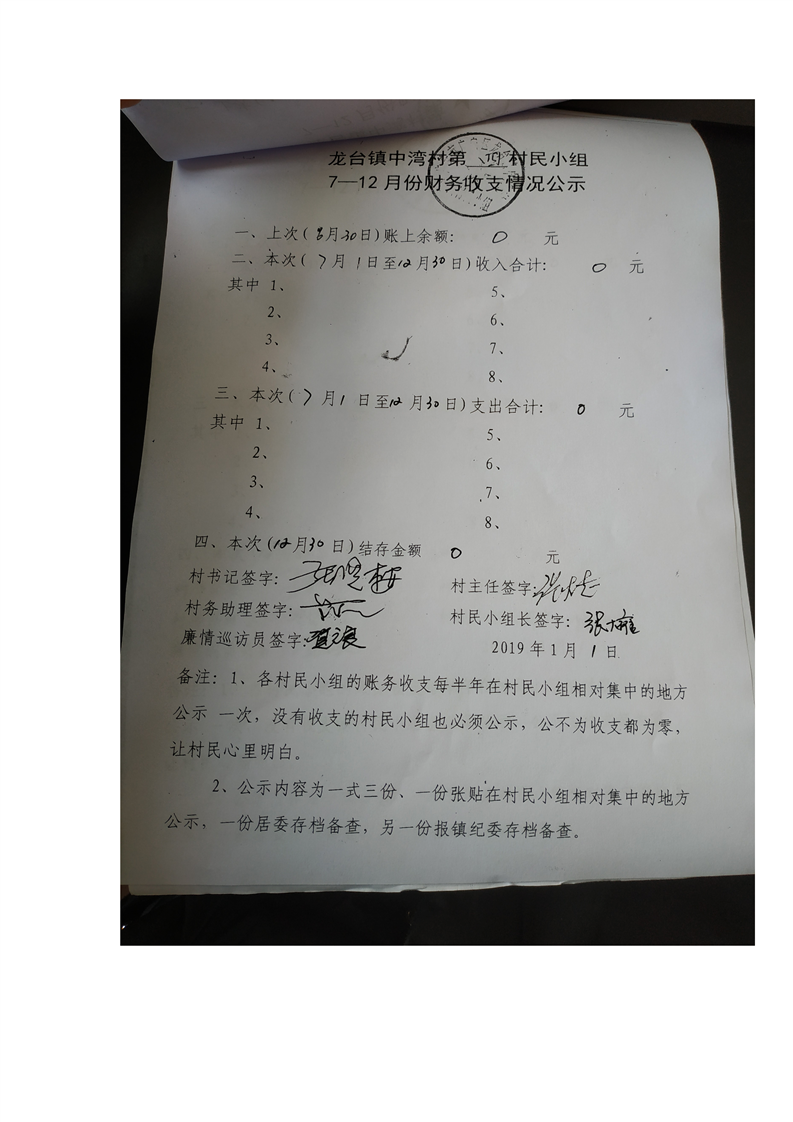 龙台镇中湾村第 四 村民小组
7—12月份财务收支情况公示
一、上次( 月30日)账上余额: 0 元
二、本次(7月1日至12月30日)收入合计: 0 元
其中 1、 5、
2、 6、
3、 7、
4、 8、
三、本次(7月1日至12月30日)支出合计: 0 元
其中 1、 5、
2、 6、
3、 7、
4、 8、
四、本次(12月30日)结存金额 0 元
村书记签字: 村主任签字:
村务助理签字: 村民小组长签字:
廉情巡访员签字:
2019年1月1日
备注:1、各村民小组的账务收支每半年在村民小组相对集中的地方
公示 一次,没有收支的村民小组也必须公示,公不为收支都为零,
让村民心里明白。
2、公示内容为一式三份、一份张贴在村民小组相对集中的地方
公示,一份居委存档备查,另一份报镇纪委存档备查。